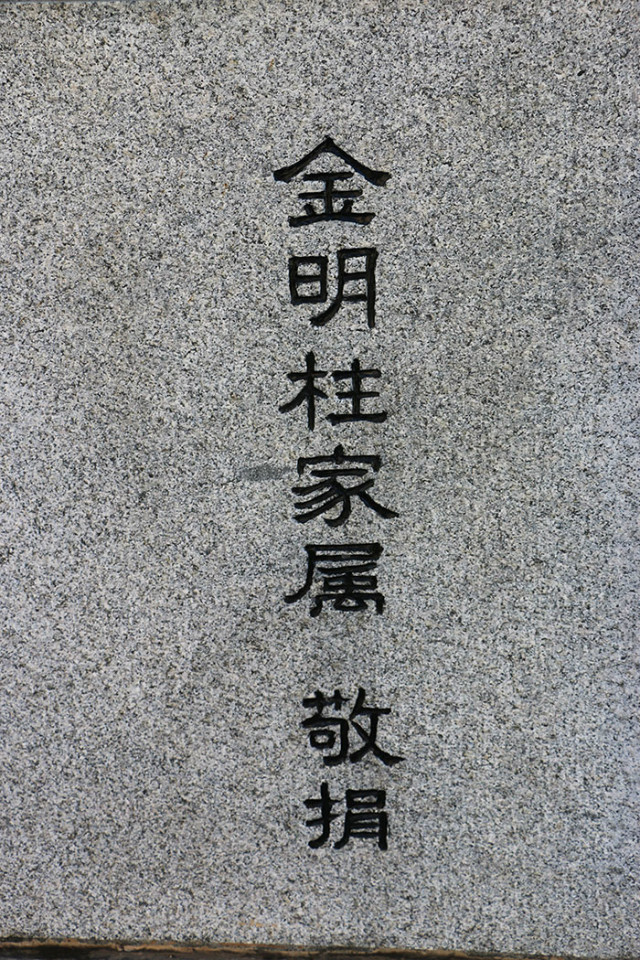 金明柱家属 敬捐